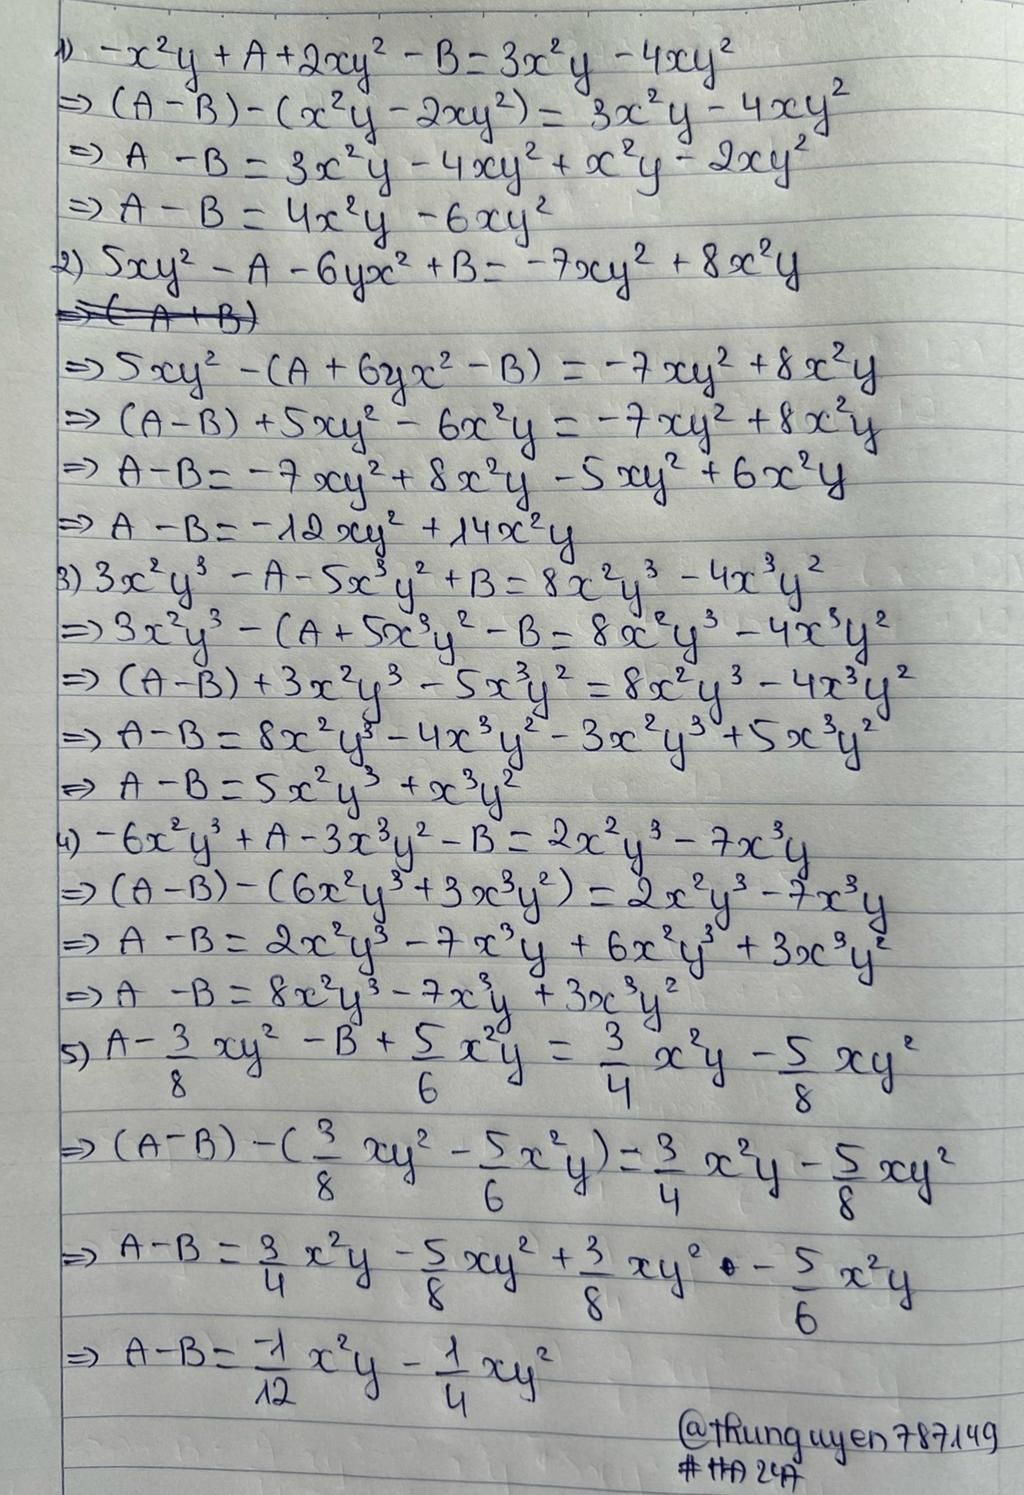 1) -x²y + A + 2xy² - B = 3x²y - 4xy²
=> (A - B) - (x²y - 2xy²) = 3x²y - 4xy²
=> A - B = 3x²y - 4xy² + x²y - 2xy²
=> A - B = 4x²y - 6xy²
2) 5xy² - A - 6yx² + B = -7xy² + 8x²y
=> (A + B)
=> 5xy² - (A + 6yx² - B) = -7xy² + 8x²y
=> (A - B) + 5xy² - 6x²y = -7xy² + 8x²y
=> A - B = -7xy² + 8x²y - 5xy² + 6x²y
=> A - B = -12xy² + 14x²y
3) 3x²y³ - A - 5x³y² + B = 8x²y³ - 4x³y²
=> 3x²y³ - (A + 5x³y² - B = 8x²y³ - 4x³y²
=> (A - B) + 3x²y³ - 5x³y² = 8x²y³ - 4x³y²
=> A - B = 8x²y³ - 4x³y² - 3x²y³ + 5x³y²
=> A - B = 5x²y³ + x³y²
4) -6x²y³ + A - 3x³y² - B = 2x²y³ - 7x³y
=> (A - B) - (6x²y³ + 3x³y²) = 2x²y³ - 7x³y
=> A - B = 2x²y³ - 7x³y + 6x²y³ + 3x³y²
=> A - B = 8x²y³ - 7x³y + 3x³y²
5) A - 3/8 xy² - B + 5/6 x²y = 3/4 x²y - 5/8 xy²
=> (A - B) - (3/8 xy² - 5/6 x²y) = 3/4 x²y - 5/8 xy²
=> A - B = 3/4 x²y - 5/8 xy² + 3/8 xy² - 5/6 x²y
=> A - B = -1/12 x²y - 1/4 xy²
@thunguyen787149
#HA24A